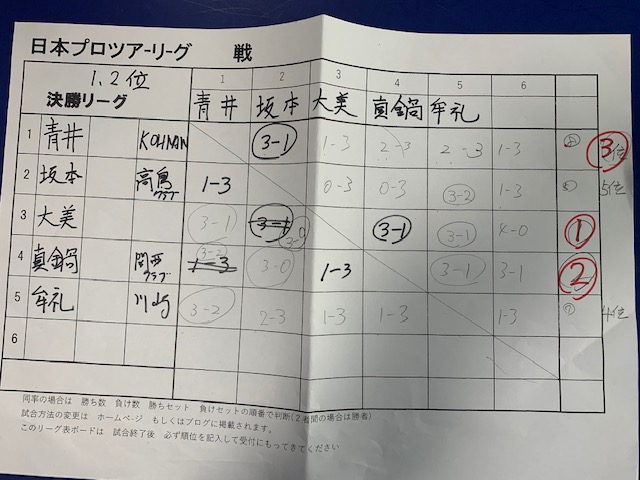 日本プロツアーリーグ 戦
1,2位
決勝リーグ
1 2 3 4 5 6
青井 坂本 大美 真鍋 牟礼
1 青井 KOHNAN 3-1 1-3 2-3 2-3 1-3 3位
2 坂本 1-3 0-3 0-3 3-2 1-3 5位
3 大美 3-1 3-1 3-0 3-1 3-1 4-0 1
4 真鍋 関西クラブ 1-3 3-0 1-3 3-1 3-1 2
5 牟礼 3-2 2-3 1-3 1-3 1-3 4位
6
同率の場合は 勝ち数 負け数 勝ちセット 負けセットの順番で判断(2者間の場合は勝者)
試合方法の変更は ホームページ もしくはブログに掲載されます。
このリーグ表ボードは 試合終了後 必ず順位を記入して受付にもってきてください